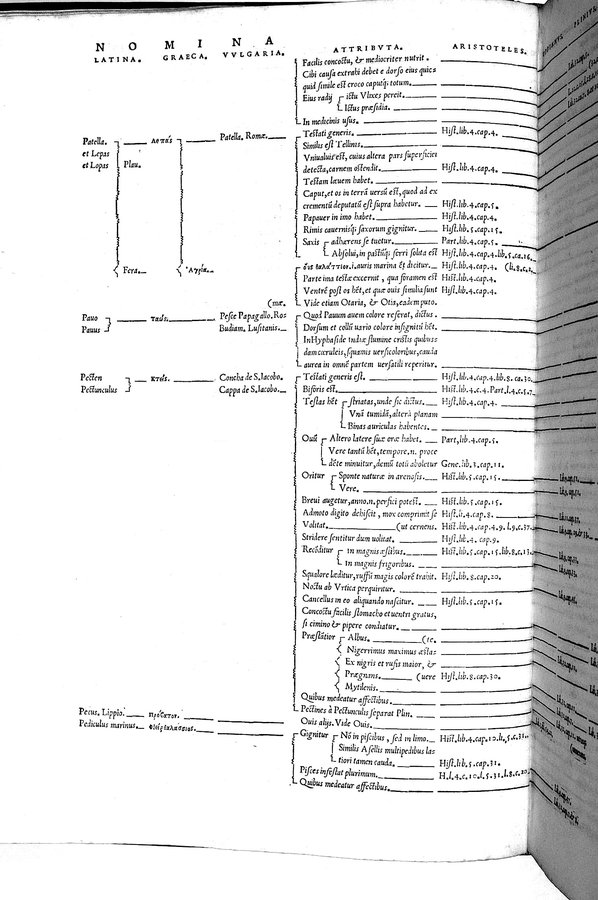 N O M I N A
LATINA. GRAECA. VVLGARIA. ATTRIBVTA. ARISTOTELES.
Facilis concoctu, & mediocriter nutrit.
Cibi causa extrahi debet e dorso eius quicq
quid simile est croco caputq; totum.
Eius radij ictu Vlixes periit.
Ictus præsidia.
In medicinis usus.
Patella. λοπάς Patella. Romæ. Testati generis. Hist.lib.4.cap.4.
et Lepas Similis est Tellinis.
et Lopas Plau. Vniualuis est, cuius altera pars superficiei
detecta, carnem ostendit. Hist.lib.4.cap.4.
Testam læuem habet.
Caput, et os in terrā uersū est, quod ad ex
crementū deputatū est supra habetur. Hist.lib.4.cap.5.
Papauer in imo habet. Hist.lib.4.cap.4.
Rimis cauernisq; saxorum gignitur. Hist.lib.5.cap.15.
Saxis adhærens se tuetur. Part.lib.4.cap.5.
Absolui, in pastūq; ferri solita est Hist.lib.4.cap.4.lib.5.ca.16.
Fera. Ἀγρία. .i. auris marina ēt dicitur. Hist.lib.4.cap.4.
Parte ima testæ excernit, qua foramen est Hist.lib.4.cap.4.
Ventrē post os hēt, et quæ ouis similia sunt Hist.lib.4.cap.4.
(mæ. Vide etiam Otaria, & Otis, eadem puto.
Pauo ταώς. Pesce Papagallo. Ro Quod Pauum auem colore referat, dictus.
Pauus Budiam. Lusitanis. Dorsum et collū uario colore insignitū hēt.
In Hyphaside Indiæ flumine cristis quibus
dam cæruleis, squamis uersicoloribus, cauda
aurea in omnē partem uersatili reperitur.
Pecten κτείς. Concha de S. Iacobo. Testati generis est. Hist.lib.4.cap.4.lib.8.ca.30.
Pectunculus Cappa de S. Iacobo. Biforis est. Hist.li.4.c.4.Part.l.4.c.5.7.
Testas hēt striatas, unde sic dictus. Hist.lib.4.cap.4.
Vnā tumidā, alterā planam
Binas auriculas habentes.
Ouū Altero latere suæ oræ habet. Part.lib.4.cap.5.
Vere tantū hēt, tempore, n. proce
dēte minuitur, demū totū aboletur Gene.lib.3.cap.11.
Oritur Sponte naturæ in arenosis. Hist.lib.5.cap.15.
Vere.
Breui augetur, anno.n.perfici potest. Hist.lib.5.cap.15.
Admoto digito dehiscit, mox comprimit se Hist.li.4.cap.8.
Volitat. (ut cernens. Hist.lib.4.cap.4.9.l.9.c.37.
Stridere sentitur dum uolitat. Hist.lib.4. cap.9.
Recōditur in magnis æstibus. Hist.lib.5.cap.15.lib.8.c.13.
In magnis frigoribus.
Squalore læditur, ruffūq magis colorē trahit. Hist.lib.8.cap.20.
Noctu ab Vrtica perquiritur.
Cancellus in eo aliquando nascitur. Hist.lib.5.cap.15.
Concoctu facilis stomacho et uentri gratus,
si cimino & pipere condiatur.
Præstātior Albus. (te.
Nigerrimus maximus æsta=
Ex nigris et rufis maior, &
Prægnans. (uere Hist.lib.8.cap.30.
Mytilenis.
Quibus medeatur affectibus.
Pectines à Pectunculis separat Plin.
Pecus, Lippio. πρόβατον. Ouis alijs. Vide Ouis.
Pediculus marinus. Gignitur Nō in piscibus, sed in limo. Hist.lib.4.cap.10.li.5.c.31.
Similis Asellis multipedibus la=
tiori tamen cauda. Hist.lib.5.cap.31.
Pisces infestat plurimum. H.l.4.c.10.l.5.31.l.8.c.20.
Quibus medeatur affectibus.